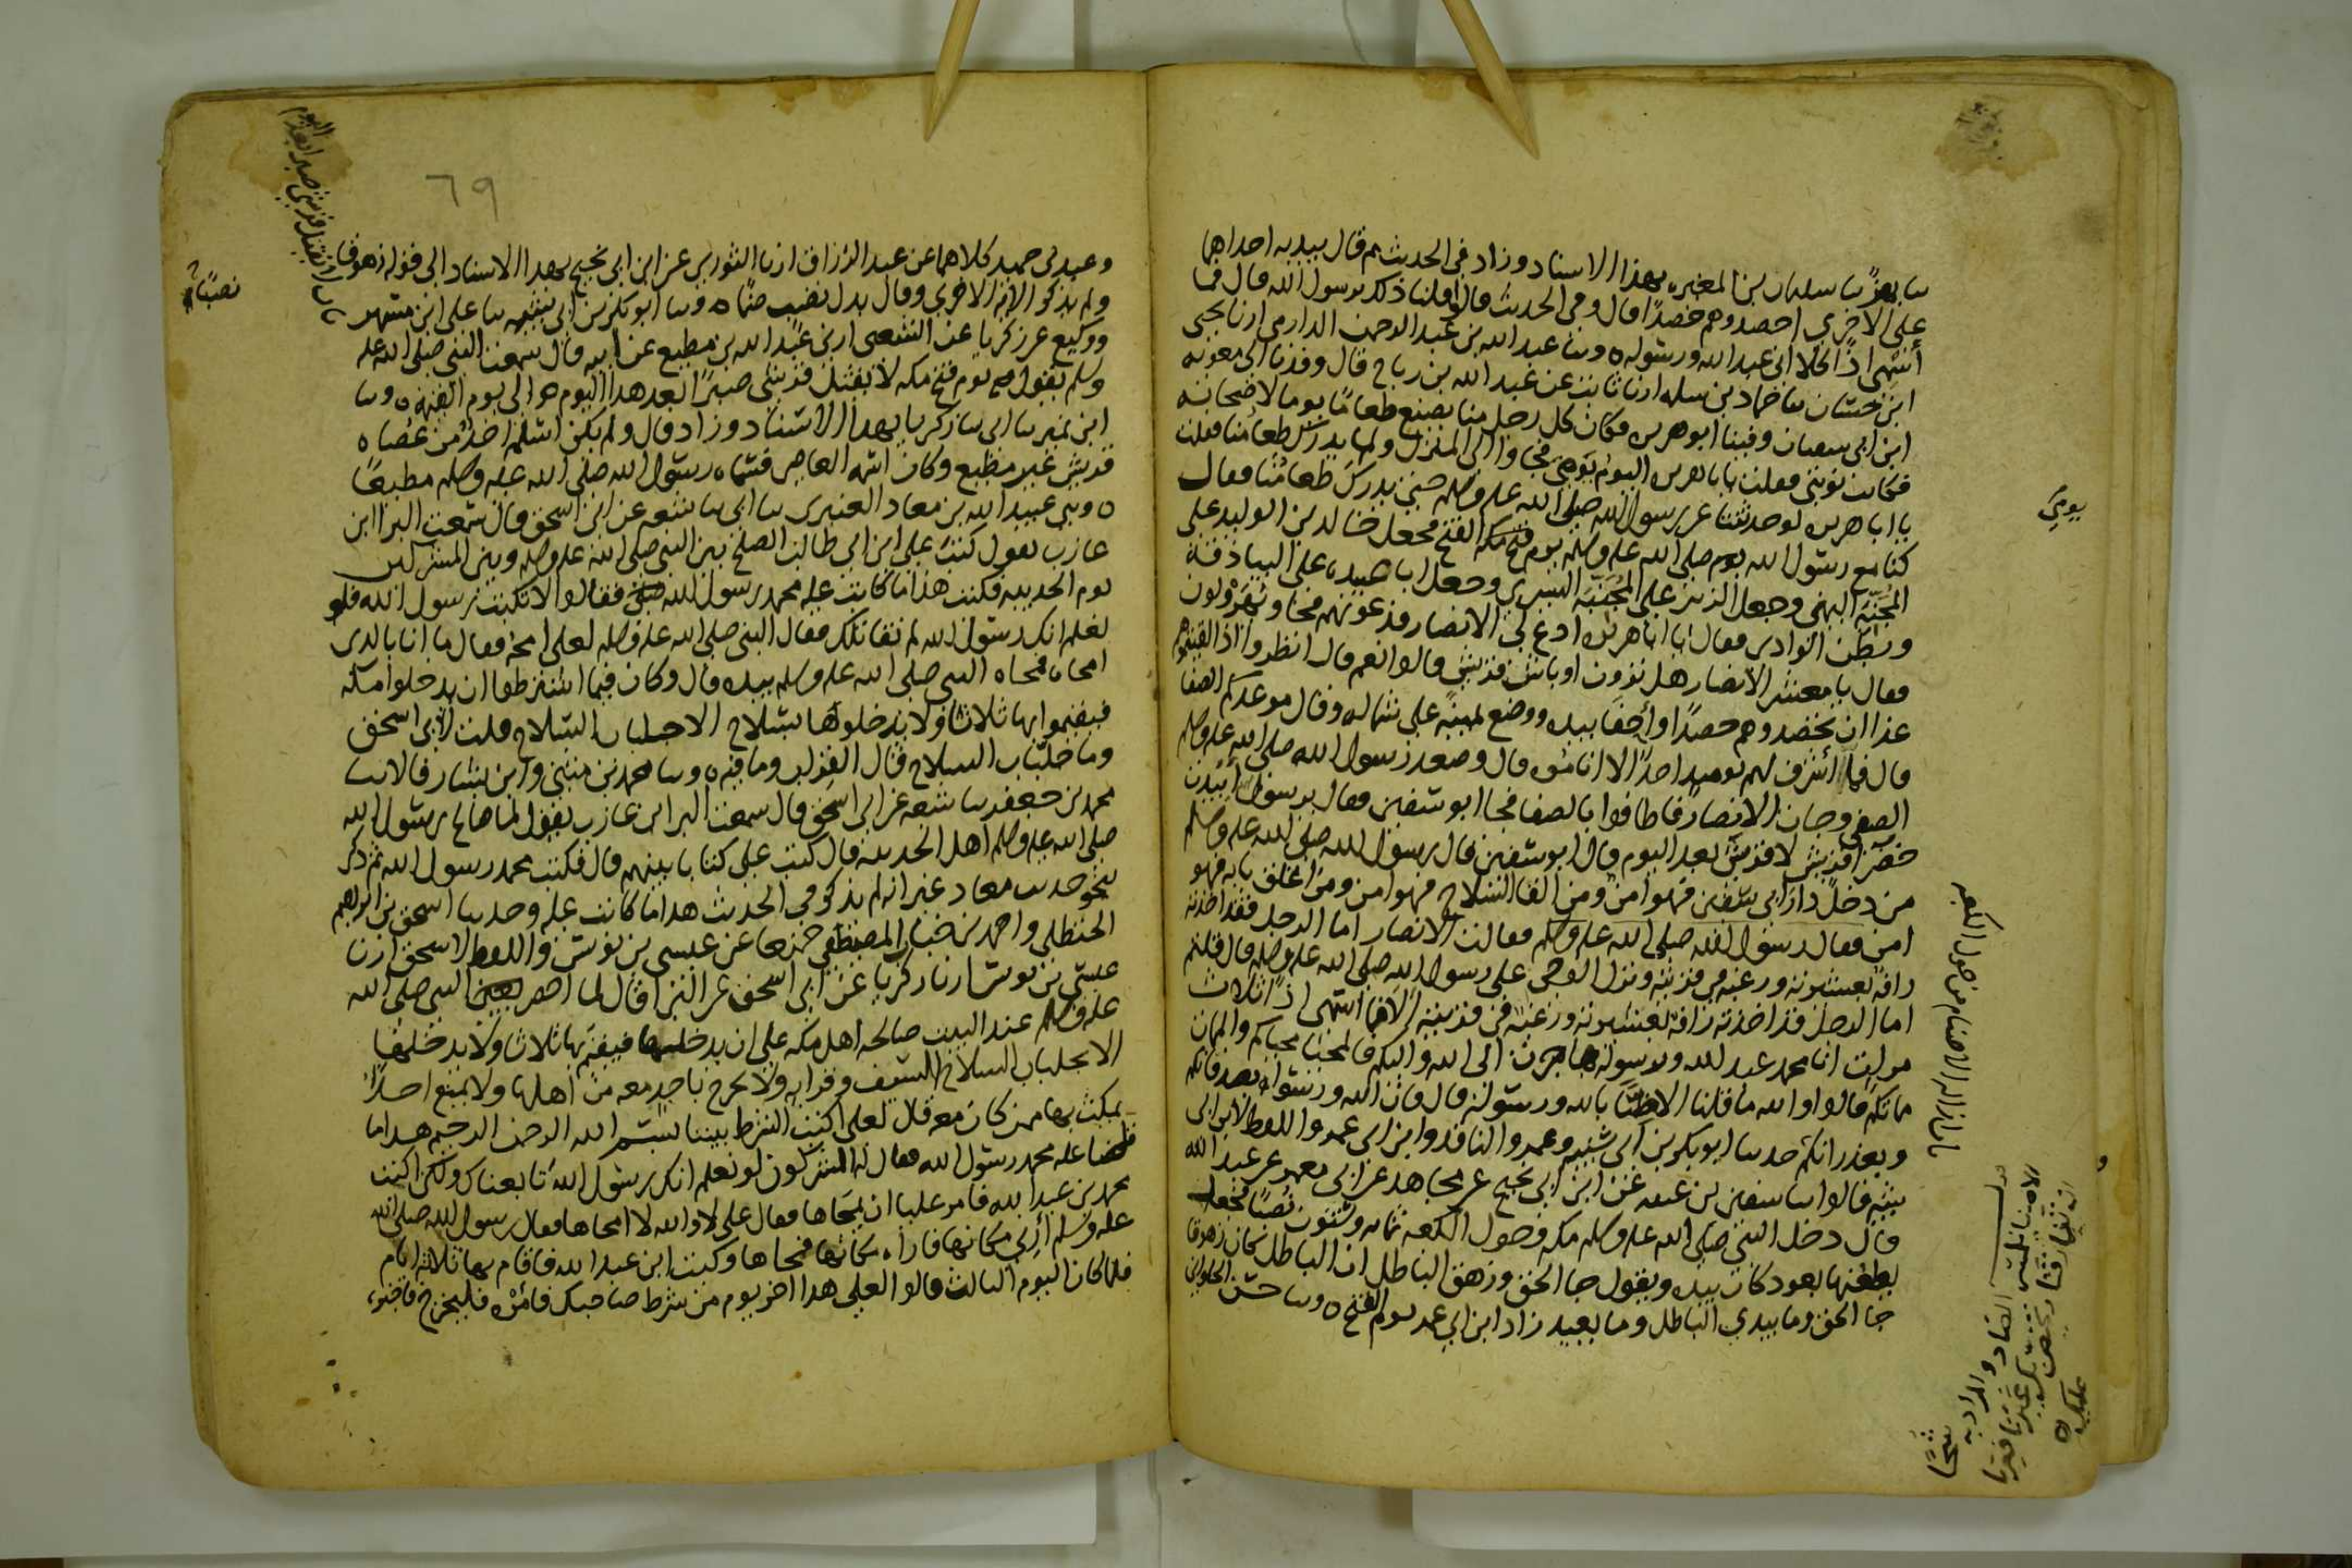 ثنا بهز ثنا سليمان بن المغيره بهذا الاسناد وزاد في الحديث ثم قال بيديه احداهما
على الاخرى احصدوهم حصدا قال وفي الحديث قال قلنا ذلك يرسول الله قال فما
اسمي اذا كلا اني عبد الله ورسوله ٥ وثنا عبد الله بن عبد الرحمن الدارمي ارنا يحيى
ابن حسان ثنا حماد بن سلمه ارنا ثابت عن عبد الله بن رباح قال وفدنا الى معويه
ابن ابي سفيان وفينا ابو هريره فكان كل رجل منا يصنع طعاما يوما لاصحابه
فكانت نوبتي فقلت يابا هريره اليوم يومي فجاوا الى المنزل ولم يدرك طعامنا فقلت
يا ابا هريره لو حدثتنا عن رسول الله صلى الله عليه وسلم حتى يدرك طعامنا فقال
كنا مع رسول الله صلى الله عليه وسلم يوم الفتح فجعل خالد بن الوليد على
المجنبة اليمنى وجعل الزبير على المجنبة اليسرى وجعل ابا عبيده على البياذقة
وبطن الوادي فقال يا ابا هريره ادع لي الانصار فدعوتهم فجاو يهرولون
فقال يا معشر الانصار هل ترون اوباش قريش قالوا نعم قال انظروا اذا لقيتموهم
غدا ان تحصدوهم حصدا واحفا بيده ووضع يمينه على شماله وقال موعدكم الصفا
قال فما اشرف لهم يوميد احد الا اناموه قال وصعد رسول الله صلى الله عليه وسلم
الصفى وجات الانصار فاطافوا بالصفا فجا ابو سفين فقال يرسول الله ابيدت
خضرا قريش لا قريش بعد اليوم قال ابو سفين قال رسول الله صلى الله عليه وسلم
من دخل دار ابي سفين فهو امن ومن القا السلاح فهو امن ومن اغلق بابه فهو
امن فقال رسول الله صلى الله عليه وسلم فقالت الانصار اما الرجل فقد اخذته
رافة بعشيرته ورغبه في قريته ونزل الوحي على رسول الله صلى الله عليه وسلم قال قلتم
اما الرجل فقد اخذته رافة بعشيرته ورغبة في قريته الا فما اسمي اذا ثلاث
مرات انا محمد عبد الله ورسوله هاجرت الى الله واليكم فالمحيا محياكم والممات
مماتكم قالوا والله ما قلنا الا ضنا بالله ورسوله قال فان الله ورسوله يصدقانكم
ويعذرانكم حدثنا ابو بكر بن ابي شيبه وعمرو الناقد وابن ابي عمر واللفظ لابن ابي
شيبه قالوا ثنا سفين بن عيينه عن ابن ابي نجيح عن مجاهد عن ابي معمر عن عبد الله
قال دخل النبي صلى الله عليه وسلم مكه وحول الكعبه ثلثمايه وستون نصبا فجعل
يطعنها بعود كان بيده ويقول جا الحق وزهق الباطل ان الباطل كان زهوقا
جا الحق وما يبدي الباطل وما يعيد زاد ابن ابي عمر يوم الفتح ٥ وثنا حسن الحلواني
يومي
باب ازاله الاصنام من حول الكعبه
٦٩
وعبد بن حميد كلاهما عن عبد الرزاق ارنا الثوري عن ابن ابي نجيح بهذا الاسناد الى قوله زهوقا
ولم يذكر الاية الاخرى وقال بدل نصب صنما ٥ وثنا ابو بكر بن ابي شيبه ثنا علي ابن مسهر
ووكيع عن زكريا عن الشعبي ارنى عبد الله بن مطيع عن ابيه قال سمعت النبي صلى الله عليه
وسلم يقول يوم فتح مكه لا يقتل قريشي صبرا بعد هذا اليوم الى يوم القيمه ٥ وثنا
ابن نمير ثنا ابي ثنا زكريا بهذا الاسناد وزاد قال ولم يكن اسلم احد من عصاه
قريش غير مطيع وكان اسمه العاصي فسماه رسول الله صلى الله عليه وسلم مطيعا
٥ وثني عبيد الله بن معاذ العنبري ثنا ابي ثنا شعبه عن ابي اسحق قال سمعت البرا ابن
عازب يقول كتب علي ابن ابي طالب الصلح بين النبي صلى الله عليه وسلم وبين المشركين
يوم الحديبيه فكتب هذا ما كاتب عليه محمد رسول الله فقالوا لا تكتب رسول الله فلو
نعلم انك رسول الله لم نقاتلك فقال النبي صلى الله عليه وسلم لعلي امحه فقال ما انا بالذي
امحاه فمحاه النبي صلى الله عليه وسلم بيده قال وكان فيما اشترطوا ان يدخلوا مكه
فيقيموا بها ثلاثا ولا يدخلوها بسلاح الا جلبان السلاح قلت لابي اسحق
وما جلبان السلاح قال القراب وما فيه ٥ وثنا محمد بن مثنى وابن بشار قالا ثنا
محمد بن جعفر ثنا شعبه عن ابي اسحق قال سمعت البرا ابن عازب يقول لما صالح رسول الله
صلى الله عليه وسلم اهل الحديبيه قال كتب علي كتابا بينهم قال فكتب محمد رسول الله ثم ذكر
بنحو حديث معاذ غير انه لم يذكر في الحديث هذا ما كاتب عليه وحدثنا اسحق بن ابراهيم
الحنظلي واحمد بن جناب المصيصي جميعا عن عيسى بن يونس واللفظ لاسحق ارنا
عيسى بن يونس ارنا زكريا عن ابي اسحق عن البرا قال لما احصر النبي صلى الله
عليه وسلم عند البيت صالحه اهل مكه على ان يدخلها فيقيم بها ثلاثا ولا يدخلها
الا بجلبان السلاح السيف وقرابه ولا يخرج باحد معه من اهلها ولا يمنع احدا
يمكث بها ممن كان معه قال لعلي اكتب الشرط بيننا بسم الله الرحمن الرحيم هذا ما
قاضا عليه محمد رسول الله فقال له المشركون لو نعلم انك رسول الله تابعناك ولكن اكتب
محمد بن عبد الله فامر عليا ان يمحاها فقال علي لا والله لا امحاها فقال رسول الله صلى الله
عليه وسلم ارني مكانها فاراه مكانها فمحاها وكتب ابن عبد الله فاقام بها ثلاثه ايام
فلما كان اليوم الثالث قالوا لعلي هذا اخر يوم من شرط صاحبك فامره فليخرج فاخبره
نصبا
باب لا يقتل قرشي صبرا بعد اليوم